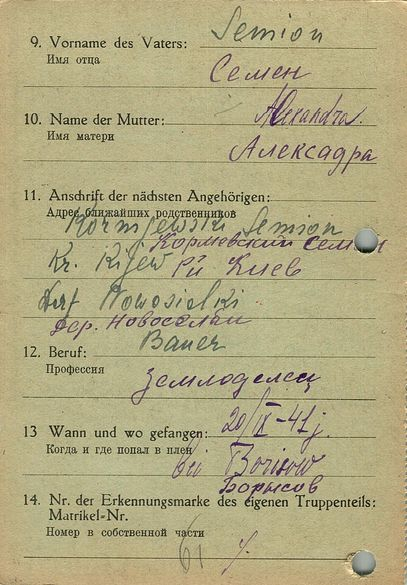 9. Vorname des Vaters: Semion
Имя отца
Семен
10. Name der Mutter: Alexandra.
Имя матери
Алексадра
11. Anschrift der nächsten Angehörigen:
Адрес ближайших родственников
Kornijewski Semion
Кормевский Семен
Kr. Kijew Рй Киев
Dorf Nowosielki
Дер. Новоселки
12. Beruf: Bauer
Профессия
Земледелец
13 Wann und wo gefangen: 20/IX-41 j.
Когда и где попал в плен
bei Borisow
Борысов
14. Nr. der Erkennungsmarke des eigenen Truppenteils:
Matrikel-Nr.
Номер в собственной части
61